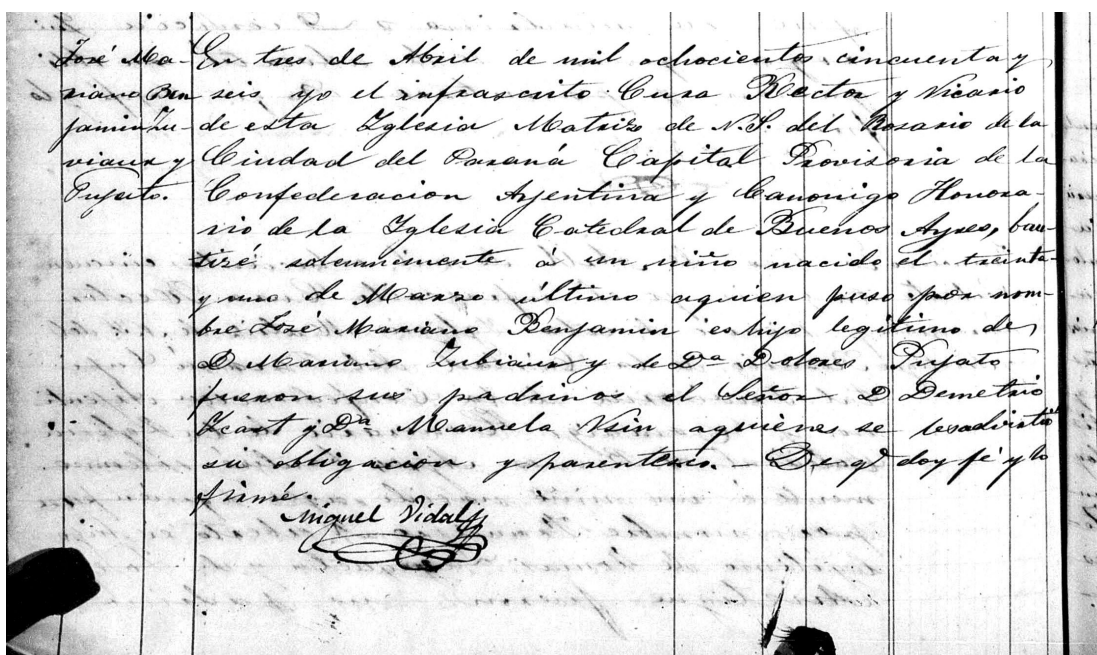 José Ma-
riano Ben
jamin Zu-
viaur y
Pujato.
En tres de Abril de mil ochocientos cincuenta y
seis yo el infrascrito Cura Rector y Vicario
de esta Yglesia Matriz de N.S. del Rosario de la
Ciudad del Paraná Capital Provisoria de la
Confederacion Arjentina y Canonigo Honora-
rio de la Yglesia Catedral de Buenos Ayres, bau-
tizé solemnimente á un niño nacido el treinta
y uno de Marzo último aquien puso por nom-
bre José Mariano Benjamin es hijo legitimo de
D Mariano Zubiaur y de Da Dolores Pujato
fueron sus padrinos el Señor D Demetrio
Ycart y Da Manuela aquienes se lesadvirtió
su obligacion y parentesco. – De qe doy fé y lo
firmé.
Miguel Vidal